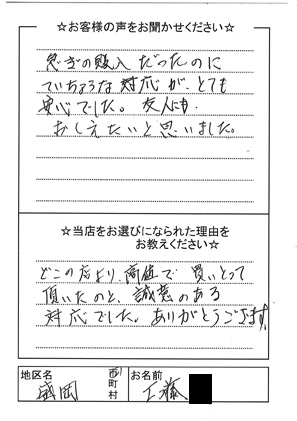 ☆お客様の声をお聞かせください☆
急ぎの購入だったのに
ていちょうな対応が、とても
安心でした。友人にも
おしえたいと思いました。
☆当店をお選びになられた理由を
お教えください☆
どこの店より、高値で買いとって
頂いたのと、誠意のある
対応でした。ありがとうございます。
地区名
盛岡
市町村
お名前
工藤